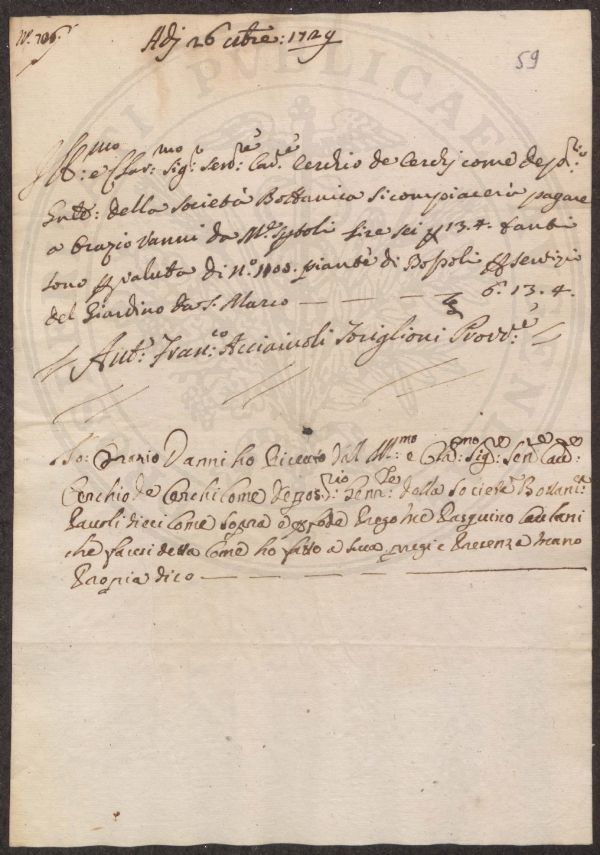 N.° 706.
Adj 26 xbre: 1729
59
Ill.mo: e Clar.mo: Sig.r: Sen.re: Cav.e Cerchio de Cerchj come Dep.rio:
Gnle: della Società Bottanica si compiacerà pagare
a Orazio Vanni da lire sei 13.4. tanti
sono p valuta di N.° 1000. piante di Bossoli p servizio
del Giardino da S. Marco — — — — 6.13.4.
Ant.° Fran.co: Acciaiuoli Toriglioni Provv.e
Io: Orazio Vanni ho riceuto dal Ill.mo: e Cla.mo: Sig.re: Sen.re Cave:
Cerchio de Cerchi come Deppos.rio: Genr.le: della Societa Bottani.ca
Pauoli dieci come sopra e p fede Prego me Pasquino Caulani
che facci detta come ho fatto a sua pregi e Presenza Mano
Propia dico —